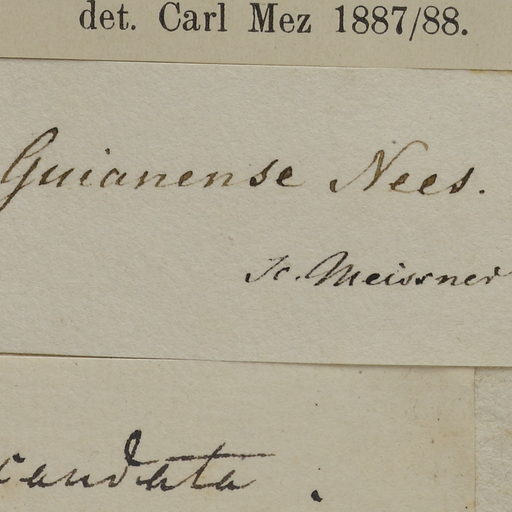 det. Carl Mez 1887/88.
Guianense Nees.
Meissner
caudata.